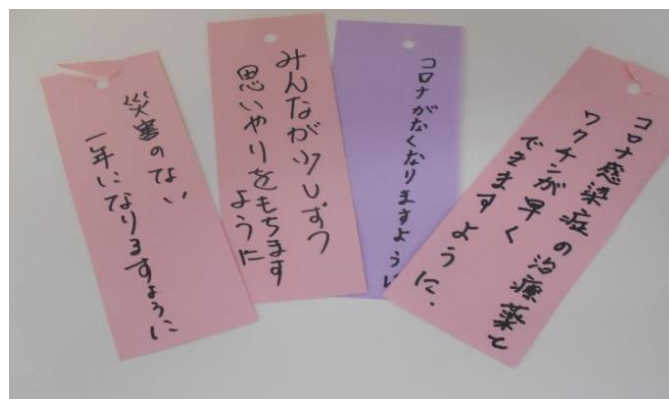 災害のない
一年になりますように
みんなが少しずつ
思いやりをもちます
ように
コロナがなくなりますように
コロナ感染症の治療薬と
ワクチンが早く
できますように.